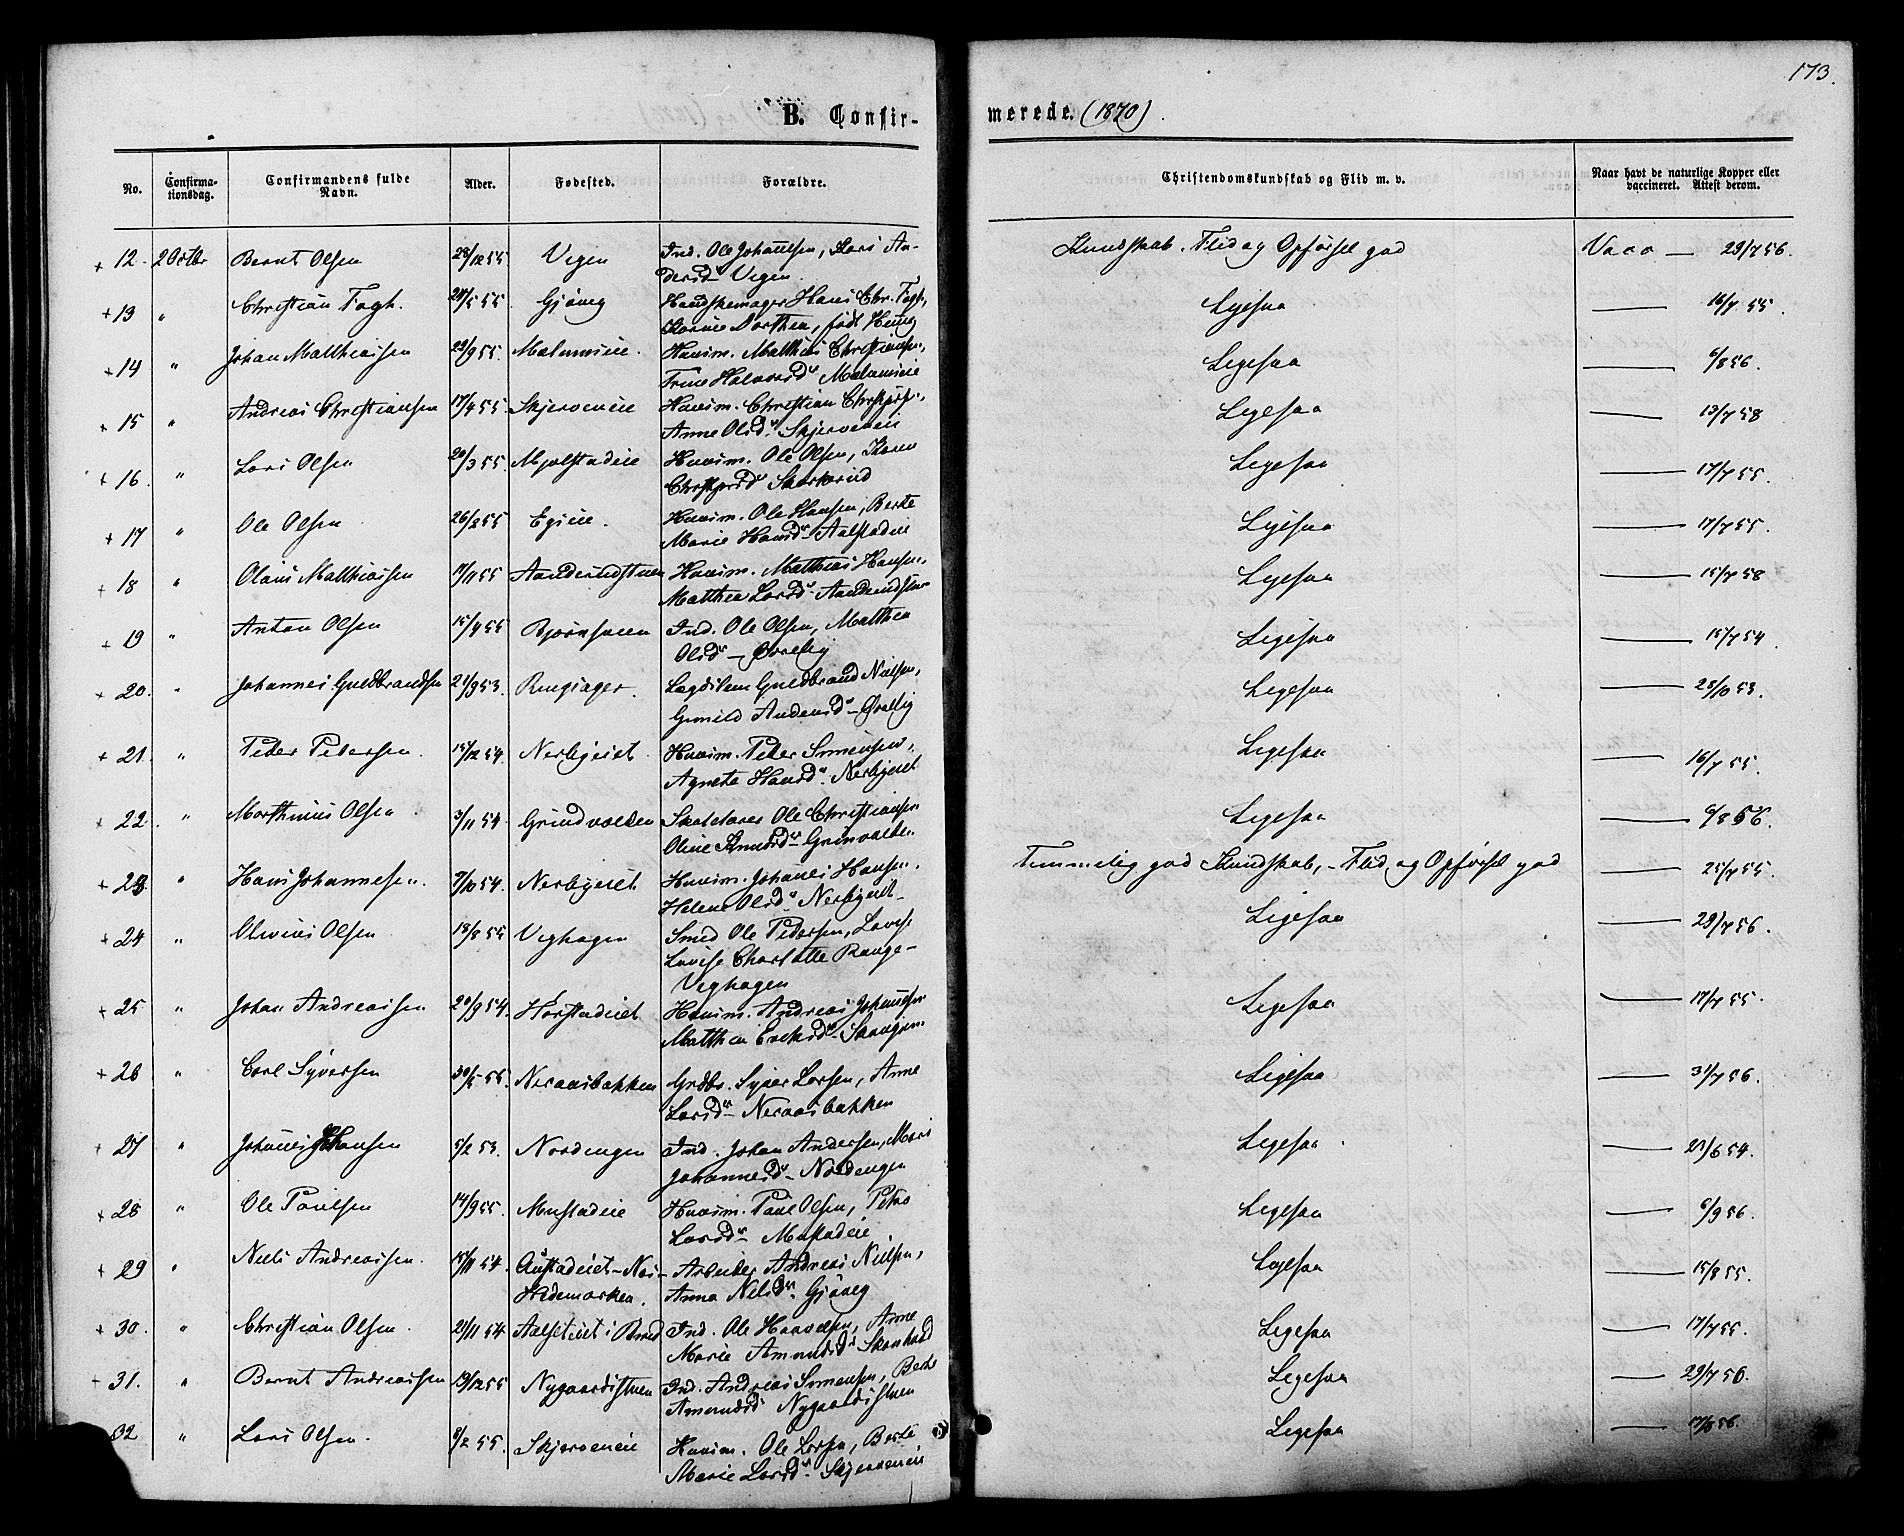 173.
B. Confirmerede. (1870).
No. Confirmationsdag. Confirmandens fulde Navn. Alder. Fødested. Forældre. Christendomskundskab og Flid m. v. Naar havt de naturlige Kopper eller vaccineret. Attest derom.
+ 12. 2 Octbr Bernt Olsen 28/12 55 Vegen Ind. Ole Johannesen, Kari An-
dersd. Vegen. Kundskab, Flid og Opførsel god Vacc — 29/7 56.
+ 13 " Christian Fogh. 5 55 Gjøvig Handskemager Hans Chr. Fogh,
Dorthea, født Kundskab Ligesaa — 16/7 55
+ 14 " Johan Matthiassen 29/9 55 Huusm. Matthias Christiansen,
Trine Halvorsd. Ligesaa — 6/8 56.
+ 15 " Andreas Christiansen 17/4 55 Skjerveneie Huusm. Christian
Anne Olsd. Skjerveneie Ligesaa — 13/7 58
+ 16. " Lars Olsen 20/3 55 Mjølstadeie Huusm. Ole Olsen, Karen
Ligesaa — 17/7 55.
+ 17 " Ole Olsen 26/2 55 Egseie. Huusm. Ole Hansen, Berte
Marie Hansd. Aalstadeie Ligesaa — 17/7 55.
+ 18 " Olaus Matthiassen 11 55 Huusm. Matthias Hansen,
Matthea Larsd. Ligesaa — 15/7 58
+ 19 " Anton Olsen 15/4 55 Bjørnsveen Ind. Ole Olsen, Matthea
Olsd. — Ligesaa — 15/7 54.
+ 20. " Johannes Guldbrandsen 21/9 53. Ringsager. Lægdslem Guldbrand Nielsen,
Gunild Andersd. — Ligesaa — 25/10 53.
+ 21. " Peder Pedersen. 15/12 54 Nerbyeiet Huusm. Peder Simensen,
Agnete Hansd. Nerbyeiet Ligesaa — 16/7 55.
+ 22. " Marthinius Olsen 3/11 54 Grindvolden Ole Christiansen
Oline Knudsd. Grinvolden Ligesaa — 6/8 56.
+ 23. " Hans Johannesen. 7/10 54. Nerbyeiet Huusm. Johannes Hansen,
Helene Olsd. Nerbyeiet Temmelig god Kundskab, — Flid og Opførsel god — 25/7 55.
+ 24 " Olavius Olsen 18/8 55 Veghagen Smed Ole Pedersen, Lovise
Lovise Charlotte Range —
Veghagen Ligesaa — 29/7 56.
+ 25 " Johan Andreassen 20/9 54. Horstadeiet Huusm. Andreas Johannesen
Matthea Eriksd. Ligesaa — 17/7 55.
+ 26 " Carl Syversen 30/5 55. Neraasbakken Grdbr. Syver Larsen, Anne
Larsd. Neraasbakken Ligesaa — 31/7 56.
+ 27 " Johannes Johansen 5/2 53. Nordengen Ind. Johan Andersen, Mari
Johannesd. — Nordengen Ligesaa — 6 54.
+ 28 " Ole Paulsen 14/9 55. Mustadeie Huusm. Paul Olsen, Petra
Larsd. — Mustadeie Ligesaa — 6/9 56.
+ 29 " Niels Andreassen. 15/11 54. Austadeiet – Næs –
Hedemarken. Arbeider Andreas Nielsen,
Anna Nilsd. Gjøvig Ligesaa — 15/8 55.
+ 30. " Christian Olsen. 21/11 54 i Brand Ind. Ole Haavelsen, Anne
Marie Amundsd. Ligesaa — 17/7 55.
31. " Bernt Andreassen 13/12 55 Nygaardstuen Ind. Andreas Simensen, Berte
Amundsd. Nygaardstuen Ligesaa — 29/7 56.
32 " Lars Olsen. 8/2 55. Skjerveneie Huusm. Ole Larsen, Berte
Marie Larsd. Skjerveneie Ligesaa — 17/8 56.